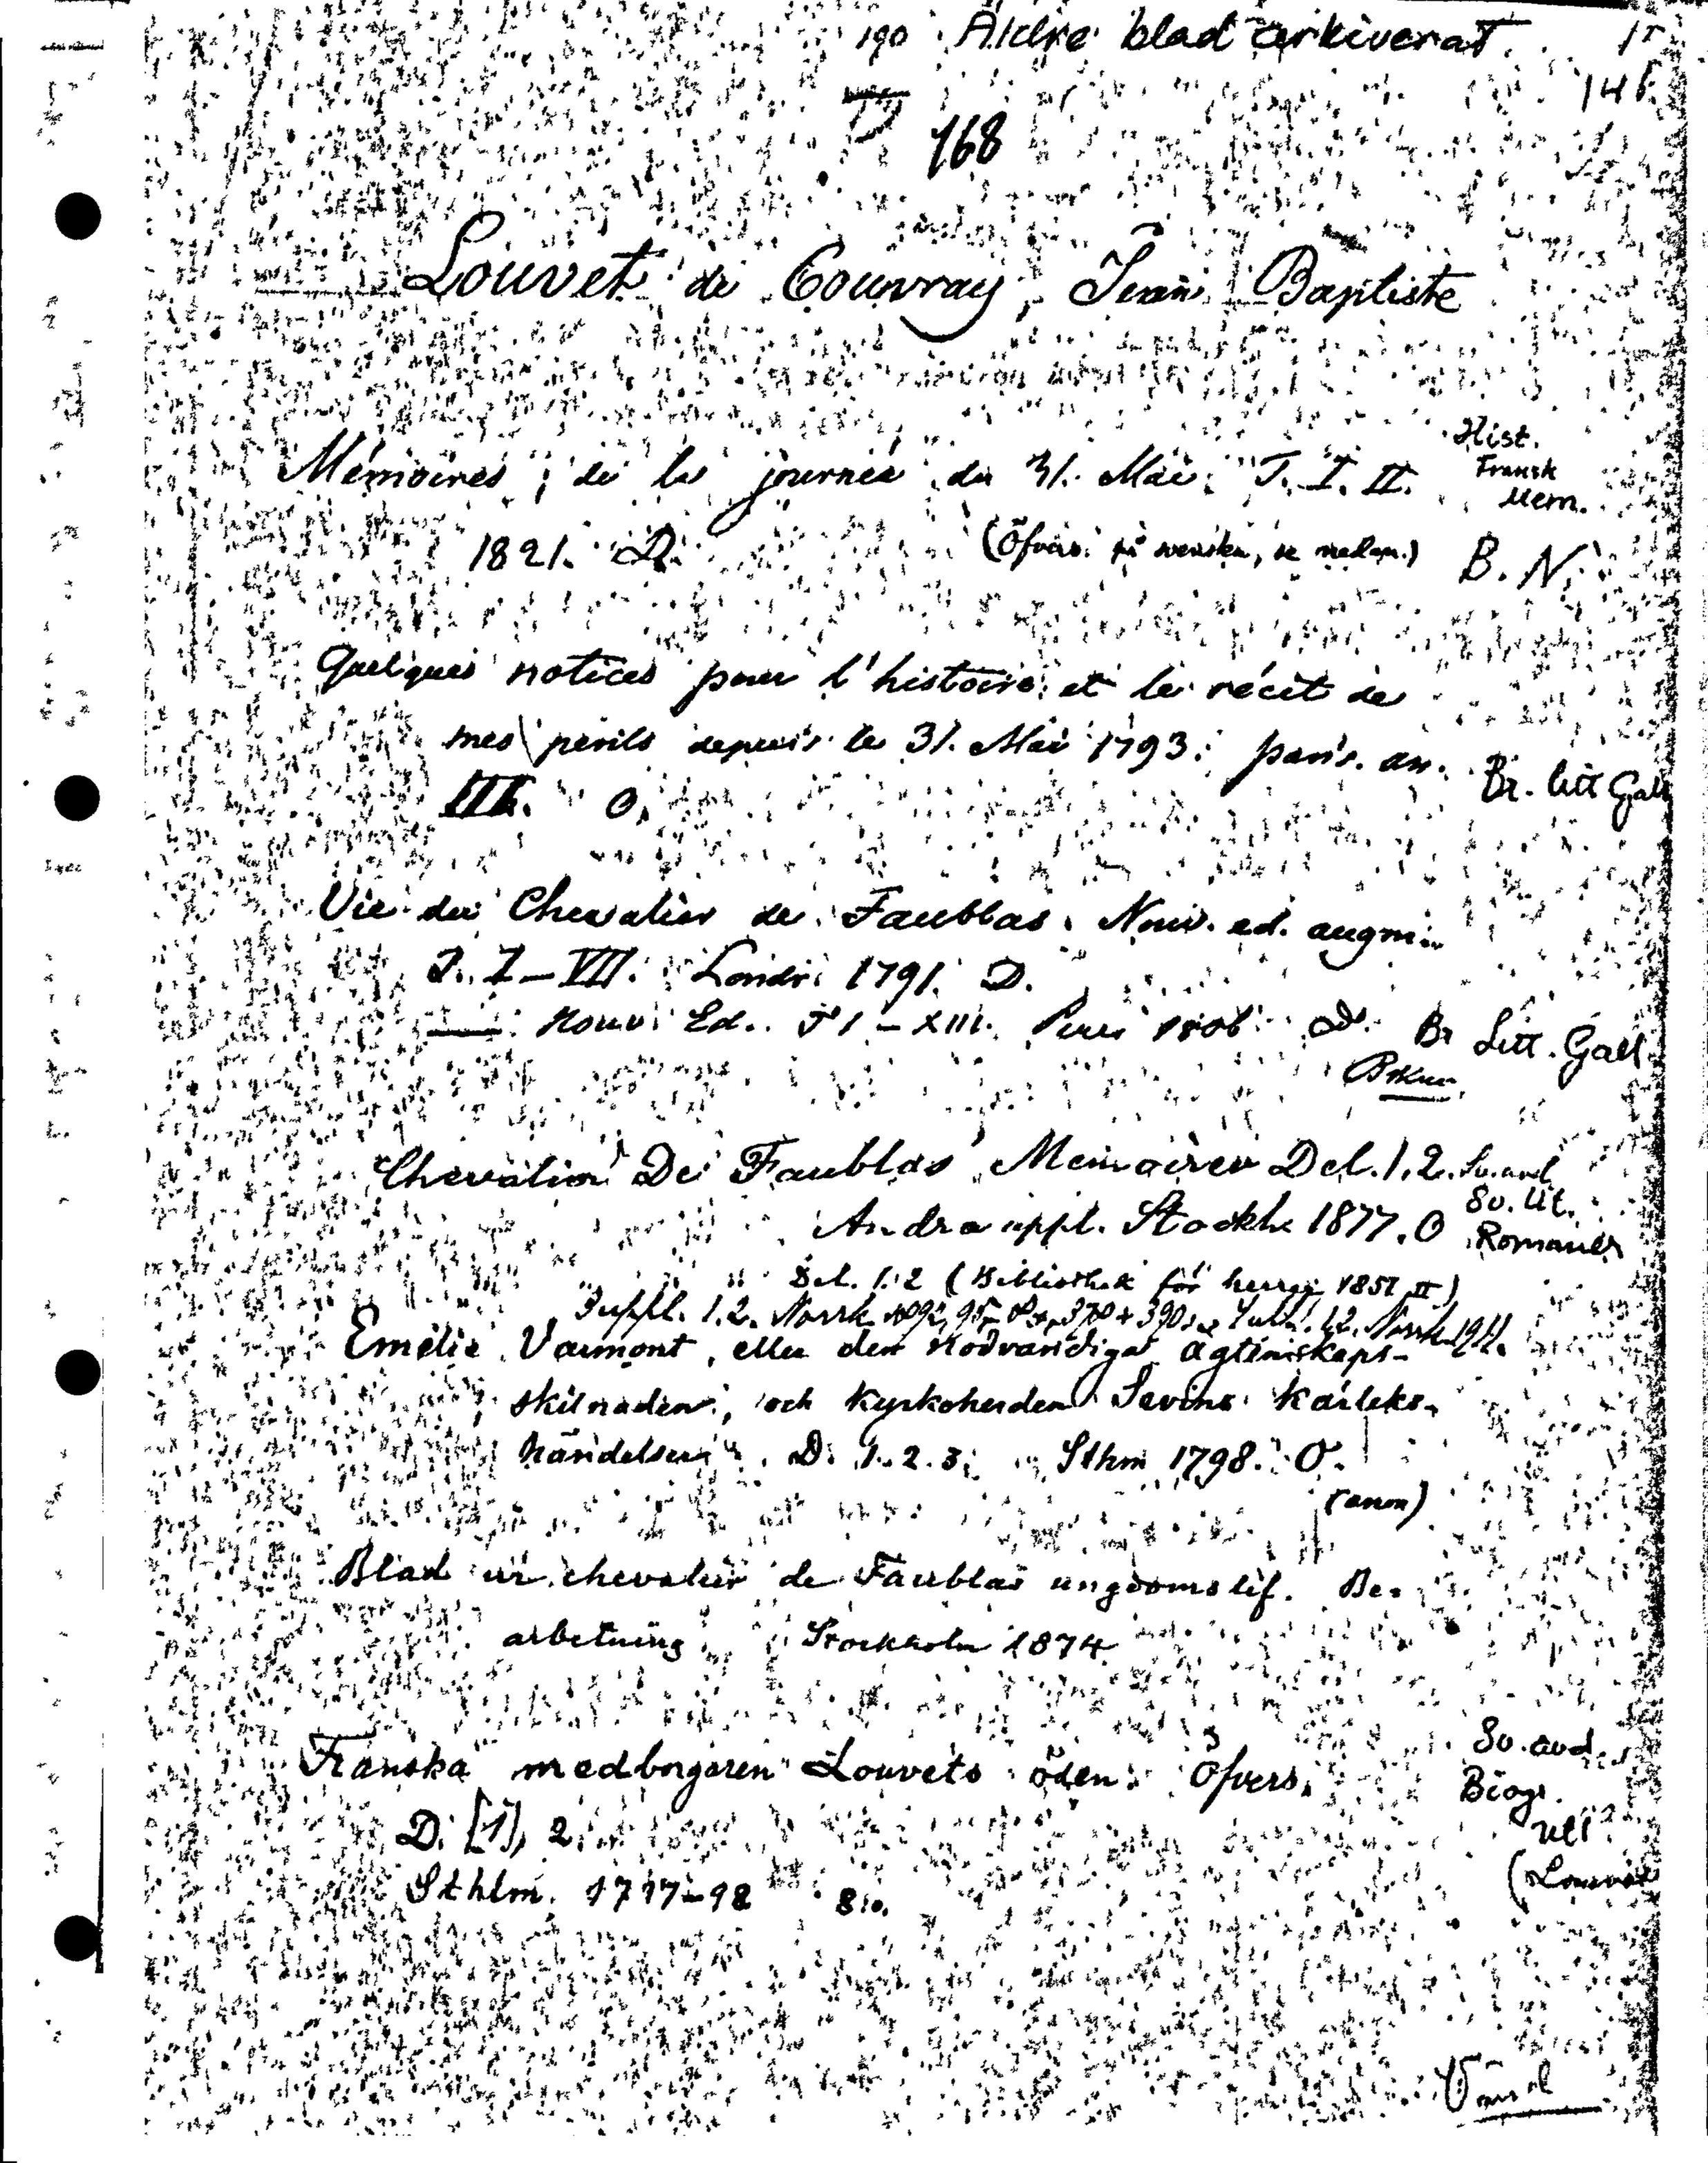 190 Äldre blad arkiverat
146
168
Louvet de Couvray, Jean Baptiste
Mémoires de la journée du 31. Mai. T. I. II. Hist. Fransk Mem.
1821. D. (Öfvers. på svenska, se nedan.) B. N.
Quelques notices pour l'histoire et le récit de
mes périls depuis le 31. Mai 1793. paris. an.
III. O. Br. litt Gall
Vie du Chevalier de Faublas. Nouv. ed. augm.
T. I–VII. Londr. 1791. D.
— Nouv. Ed. T 1 – XIII. Paris 1806 Br Litt. Gall
Chevalier De Faublas Memoirer Del. 1, 2. Sv. avd
Andra uppl. Stockh. 1877. O Sv. Ut. Romaner
Del. 1. 2 (Bibliothek för herrar, 1857 II)
3 uppl. 1. 2. Norrk. 370 + 390 s. 1. 2. Norrk. 1911.
Emélie Varmont, eller den nödvändiga ägtenskaps-
skilnaden, och Kyrkoherden Sevins kärleks-
händelser. D. 1. 2. 3. Sthm 1798. O.
(anon)
Blad ur chevalier de Faublas ungdomslif. Be-
arbetning Stockholm 1874
Franska medborgaren Louvets öden. Öfvers. Sv. avd. Biogr.
D. [1], 2 Utl
Sthlm. 1797–98 8:o. (Louvet